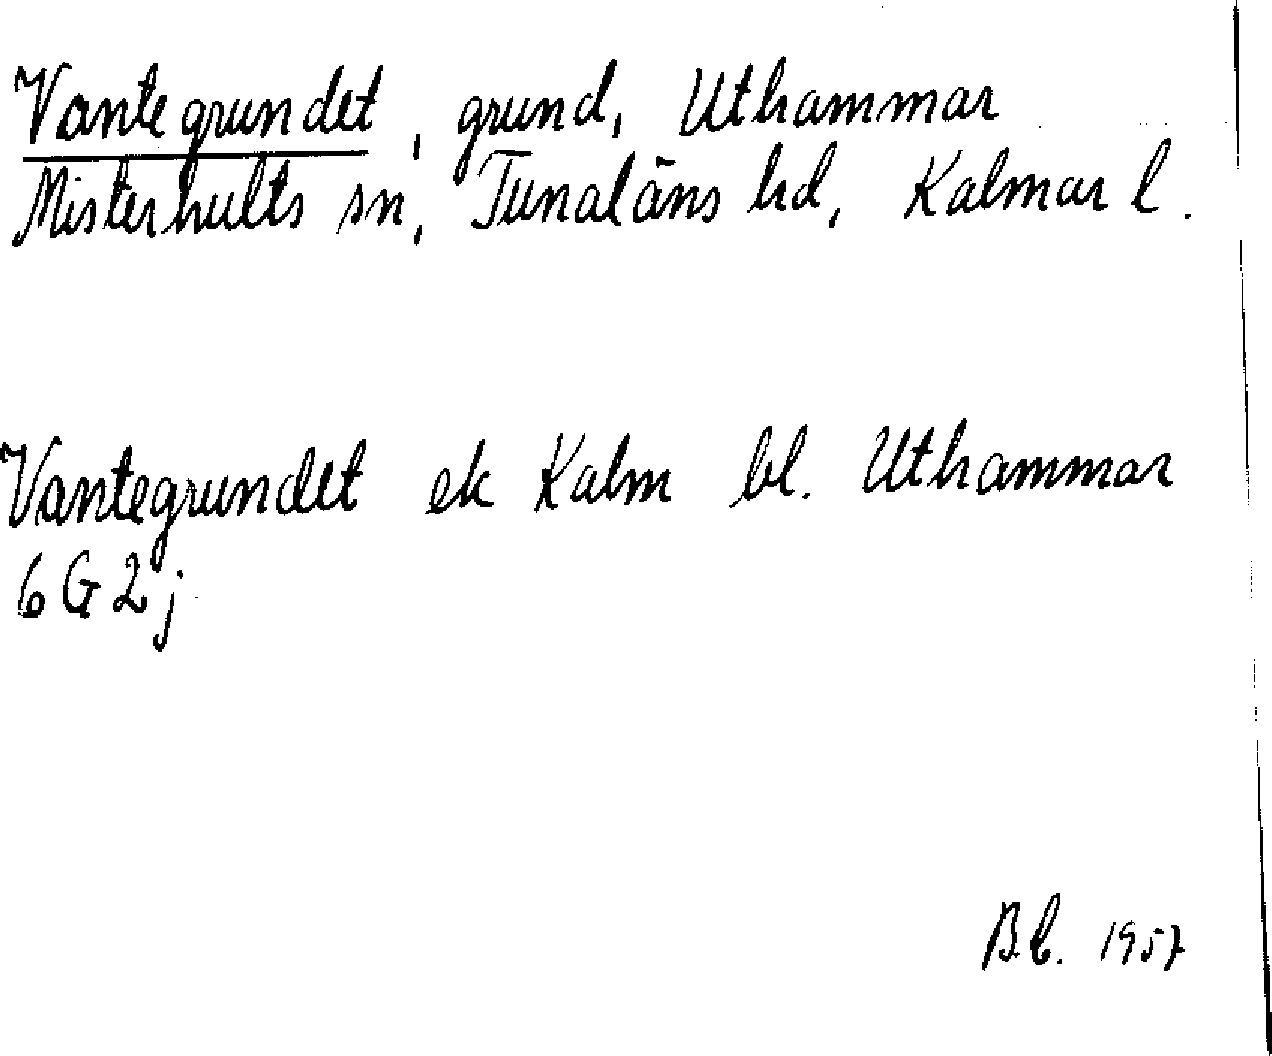 Vantegrundet, grund, Uthammar
Misterhults sn, Tunaläns hd, Kalmar l.
Vantegrundet ek Kalm bl. Uthammar
6G2j
Bb. 1957